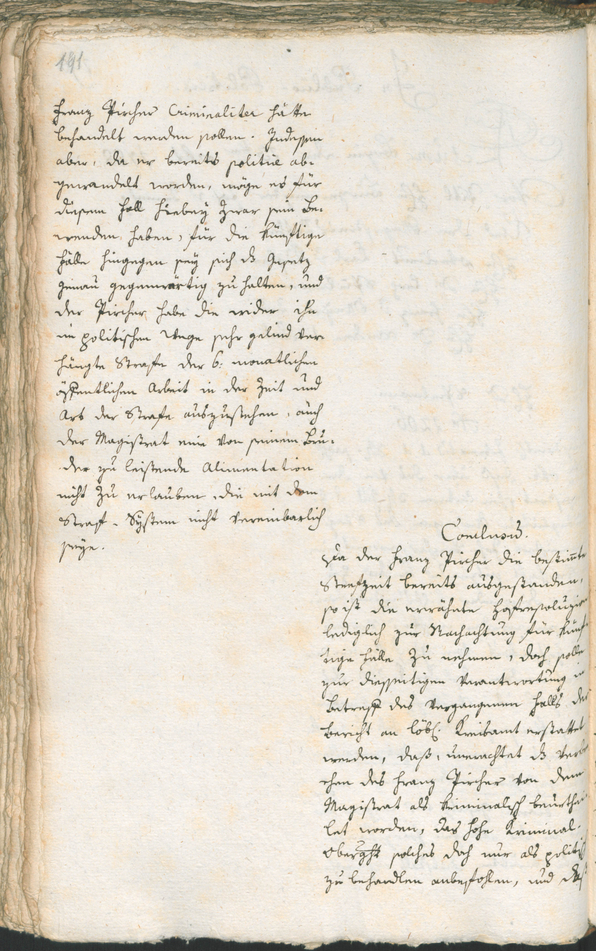 191
Franz Pircher Criminaliter hätte
behandelt werden sollen. Indessen
aber, da er bereits politice ab-
gewandelt worden, möge es für
diesem Fall hiebey zwar sein Be-
wenden haben, für die künftige
Fälle hingegen sey sich d[as] Gesetz
genau gegenwärtig zu halten, und
der Pircher habe die wider ihn
im politischen Wege sehr gelind ver-
hängte Straffe der 6. monatlichen
öffentlichen Arbeit in der Zeit und
Art der Strafe auszustehen, auch
der Magistrat eine von seinem Bru-
der zu leistende Alimentation
nicht zu erlauben, die mit dem
Straf-System nicht vereinbarlich
seye.
Conclusum.
Da der Franz Pircher die bestimte
Strafzeit bereits ausgestanden,
so ist die erwähnte Hofresoluzion
lediglich zur Nachachtung für künf-
tige Fälle zu nehmen, doch solle
zur diesseitigen Verantwortung in
Betreff des vergangenen Falls der
Bericht an löbl. Kreisamt erstattet
werden, daß, unerachtet d[as] Verbre-
chen des Franz Pircher von dem
Magistrat als kriminalisch beurthei-
let worden, das hohe Kriminal-
Obergericht solches doch nur als politisch
zu behandlen anbefohlen, und daß